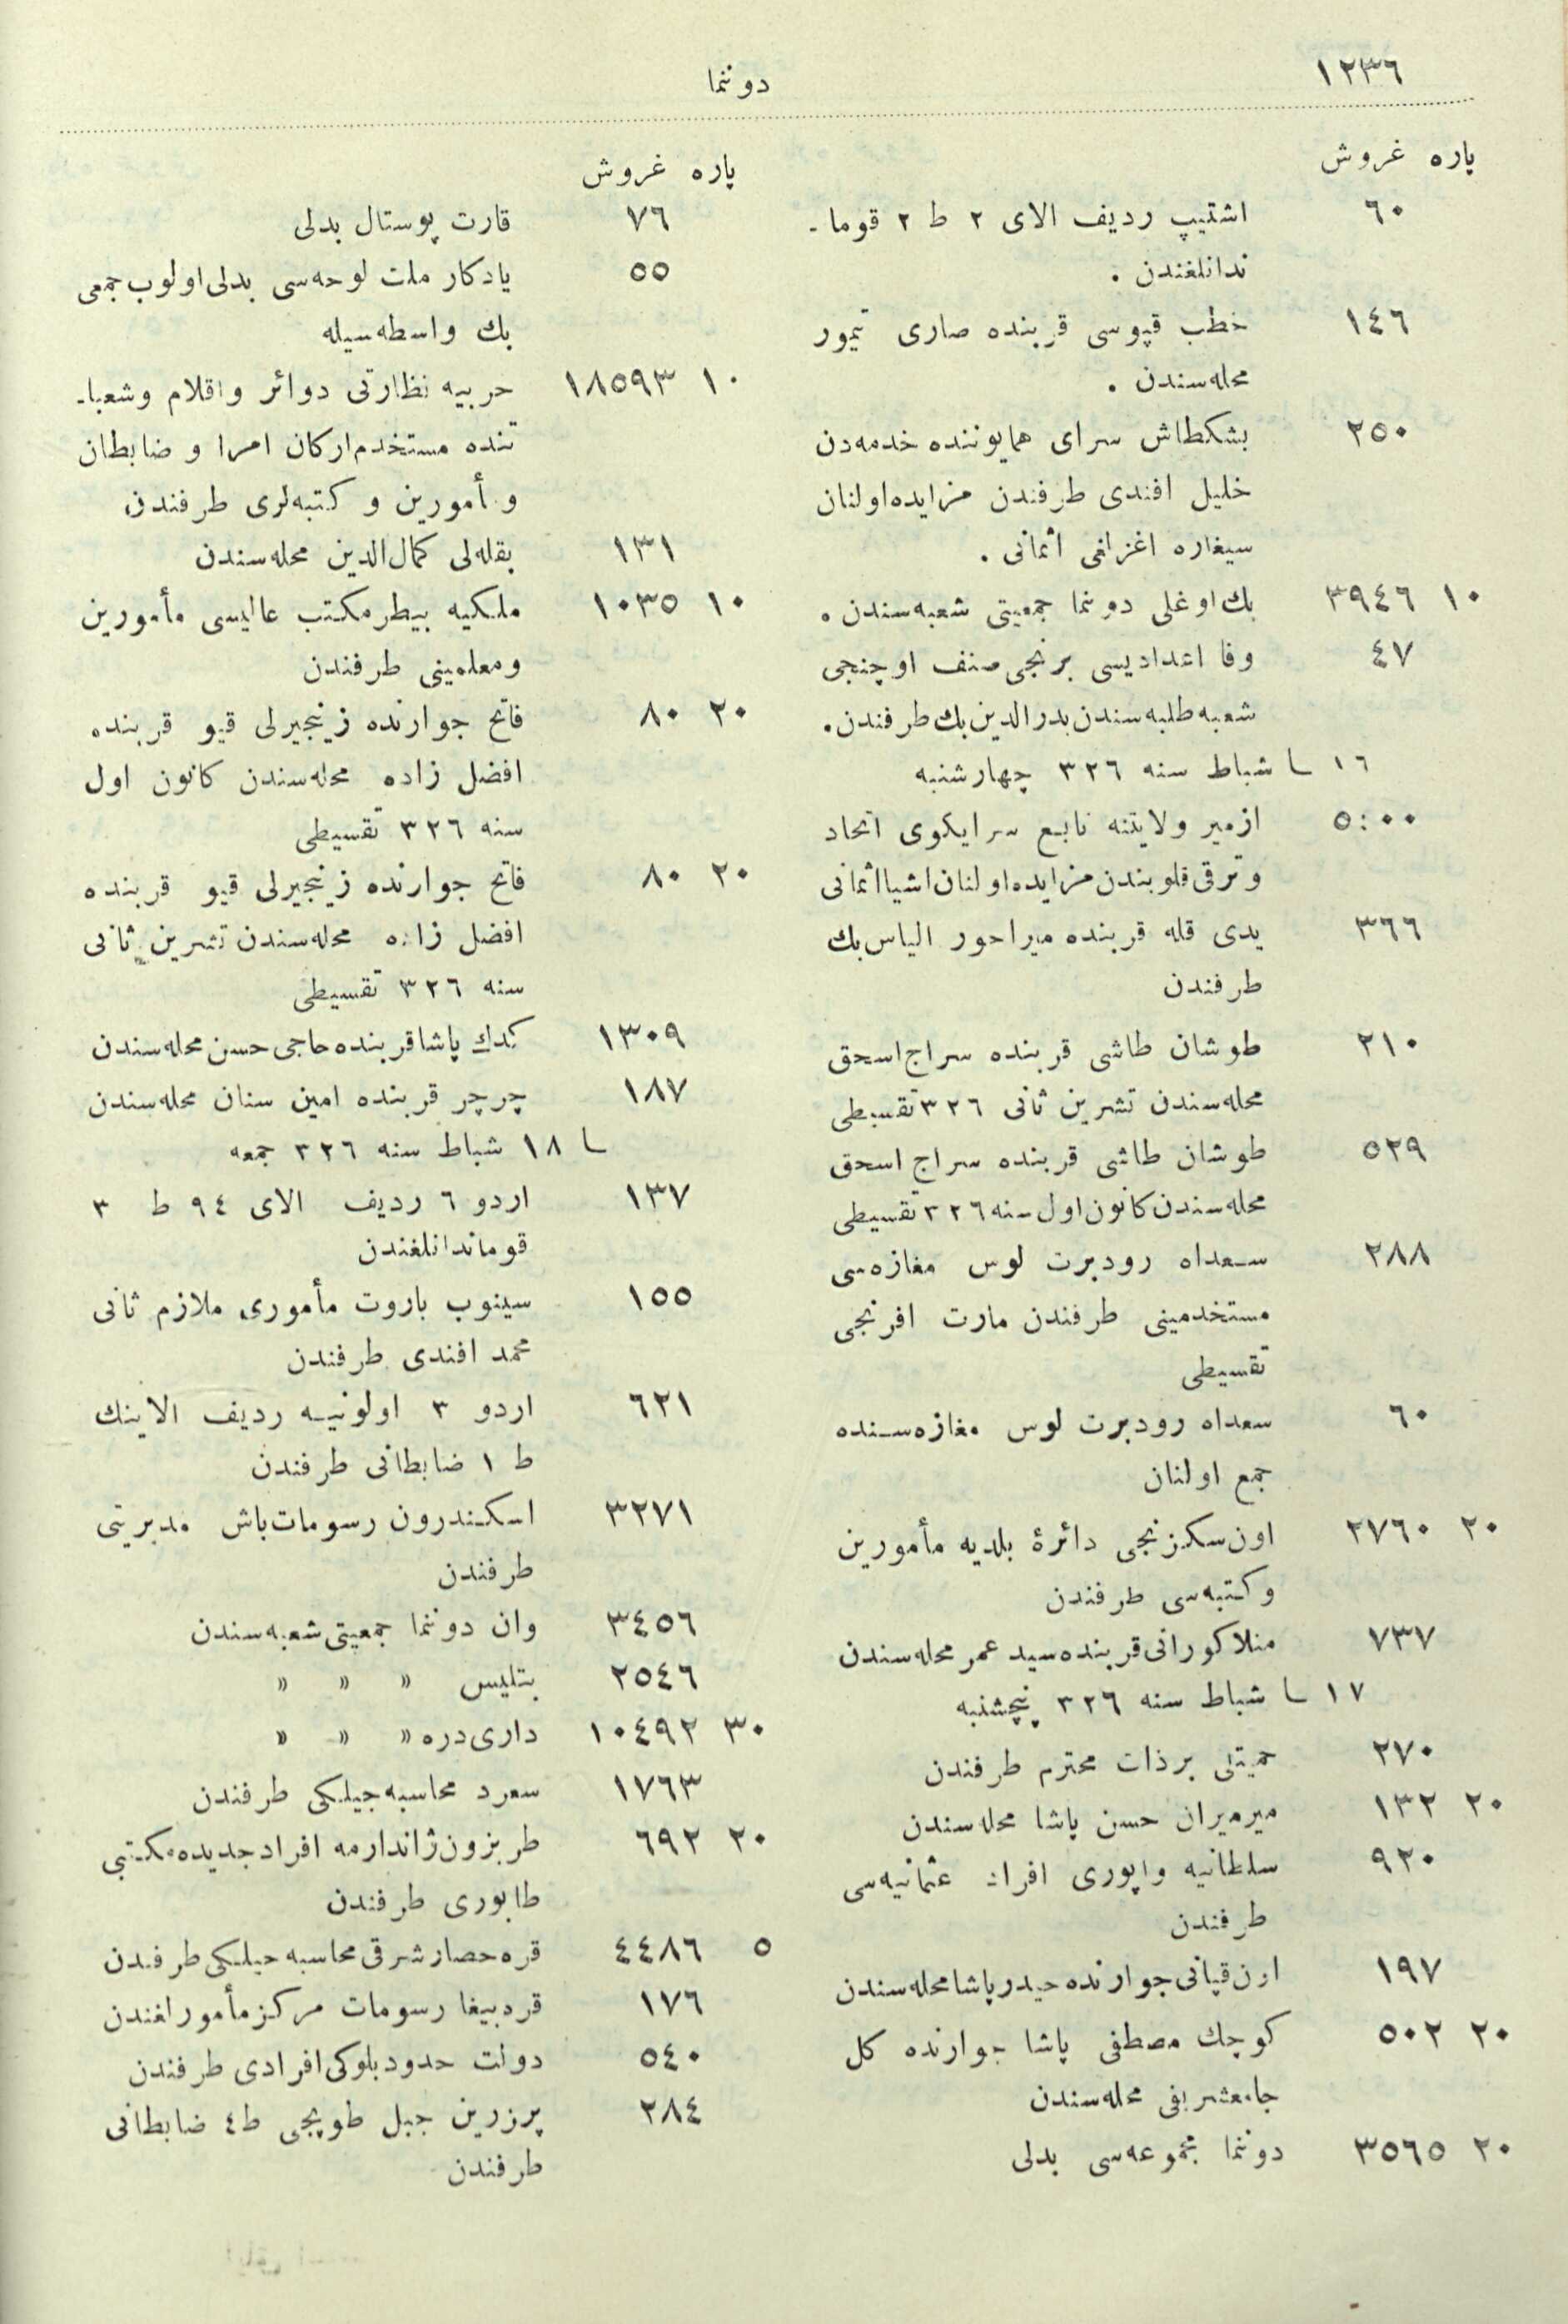 ١٢٣٦
دوننما
پاره غروش
٦٠ اشتیپ ردیف الای ٢ ط ٢ قوما ـ
ندانلغندن .
١٤٦ خطب قپوسی قربنده صاری تیمور
محله‌سندن .
٢٥٠ بشکطاش سرای همایوننده خدمه‌دن
خلیل افندی طرفندن مزایده اولنان
سیغاره اغزلغی اثمانی .
١٠ ٣٩٤٦ بك اوغلی دوننما جمعیتی شعبه‌سندن .
٤٧ وفا اعدادیسی برنجی صنف اوچنجی
شعبه طلبه‌سندن بدرالدین بك طرفندن.
١٦ شباط سنه ٣٢٦ چهارشنبه
٥٠٠ ازمیر ولایتنه تابع سرایکوی اتحاد
وترقی قلوبندن مزایده اولنان اشیا اثمانی
٣٦٦ یدی قله قربنده میراحور الیاس بك
طرفندن
٢١٠ طوشان طاشی قربنده سراج اسحق
محله‌سندن تشرین ثانی ٣٢٦ تقسیطی
٥٢٩ طوشان طاشی قربنده سراج اسحق
محله‌سندن کانون اول سنه ٣٢٦ تقسیطی
٢٨٨ سعداه رودبرت لوس مغازه‌سی
مستخدمینی طرفندن مارت افرنجی
تقسیطی
٦٠ سعداه رودبرت لوس مغازه‌سنده
جمع اولنان
٢٠ ٢٧٦٠ اون سکزنجی دائرهٔ بلدیه مأمورین
وکتبه‌سی طرفندن
٧٣٧ منلا کورانی قربنده سید عمر محله‌سندن
١٧ شباط سنه ٣٢٦ پنچشنبه
٢٧٠ حمیتلی برذات محترم طرفندن
٢٠ ١٣٢ میرمیران حسن پاشا محله‌سندن
٩٢٠ سلطانیه واپوری افراد عثمانیه‌سی
طرفندن
١٩٧ اون قپانی جوارنده حیدرپاشا محله‌سندن
٢٠ ٥٠٢ کوچك مصطفی پاشا جوارنده کل
جامعشریفی محله‌سندن
٢٠ ٣٥٦٥ دوننما مجموعه‌سی بدلی
پاره غروش
٧٦ قارت پوستال بدلی
٥٥ یادکار ملت لوحه‌سی بدلی اولوب جمعی
بك واسطه‌سیله
١٠ ١٨٥٩٣ حربیه نظارتی دوائر واقلام وشعبا ـ
تنده مستخدم ارکان امرا و ضابطان
و مأمورین و کتبه‌لری طرفندن
١٣١ بقله‌لی کمال‌الدین محله‌سندن
١٠ ١٠٣٥ ملکیه بیطر مکتب عالیسی مأمورین
ومعلمینی طرفندن
٢٠ ٨٠ فاتح جوارنده زنجیرلی قیو قربنده
افضل زاده محله‌سندن کانون اول
سنه ٣٢٦ تقسیطی
٢٠ ٨٠ فاتح جوارنده زنجیرلی قیو قربنده
افضل زاده محله‌سندن تشرین ثانی
سنه ٣٢٦ تقسیطی
١٣٠٩ کدك پاشا قربنده حاجی حسن محله‌سندن
١٨٧ چرچر قربنده امین سنان محله‌سندن
١٨ شباط سنه ٣٢٦ جمعه
١٣٧ اردو ٦ ردیف الای ٩٤ ط ٣
قوماندانلغندن
١٥٥ سینوب باروت مأموری ملازم ثانی
محمد افندی طرفندن
٦٢١ اردو ٣ اولونیه ردیف الاینك
ط ١ ضابطانی طرفندن
٣٢٧١ اسکندرون رسومات باش مدیریتی
طرفندن
٣٤٥٦ وان دوننما جمعیتی شعبه‌سندن
٢٥٤٦ بتلیس « « «
٣٠ ١٠٤٩٢ داری‌دره « « «
١٧٦٣ سعرد محاسبه‌جیلکی طرفندن
٢٠ ٦٩٢ طربزون ژاندارمه افراد جدیده مکتبی
طابوری طرفندن
٥ ٤٤٨٦ قره حصار شرقی محاسبه جیلکی طرفندن
١٧٦ قره‌بیغا رسومات مرکز مأمورلغندن
٥٤٠ دولت حدود بلوکی افرادی طرفندن
٢٨٤ پرزرین جبل طوپجی ط٤ ضابطانی
طرفندن